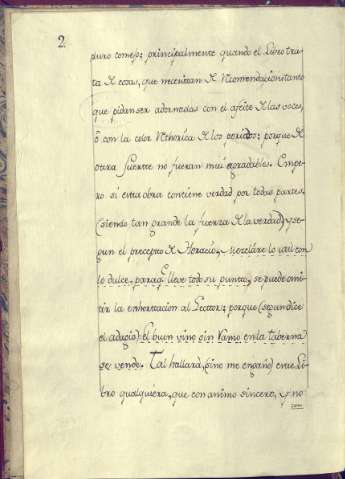 2
puro consejo; principalmente quando el Libro tra-
ta de cosas, que necesitan de recomendacion: tanto
que piden ser adornadas con el afeite de las voces,
ò con la color rethorica de los periodos; porque de
otra suerte no fueran mui agradables. Empe-
ro si esta obra contiene verdad por todas partes,
(siendo tan grande la fuerza de la verdad) y se-
gun el precepto de Horacio, mezclàre lo util con
lo dulce, paraq̃ lleve todo su punto, se puede omi-
tir la exhortacion al Lector; porque (segun dice
el adagio) el buen vino sin ramo en la taberna
se vende. Tal hallarà, (si no me engaño) este Li-
bro qualquiera, que con animo sincero, y no